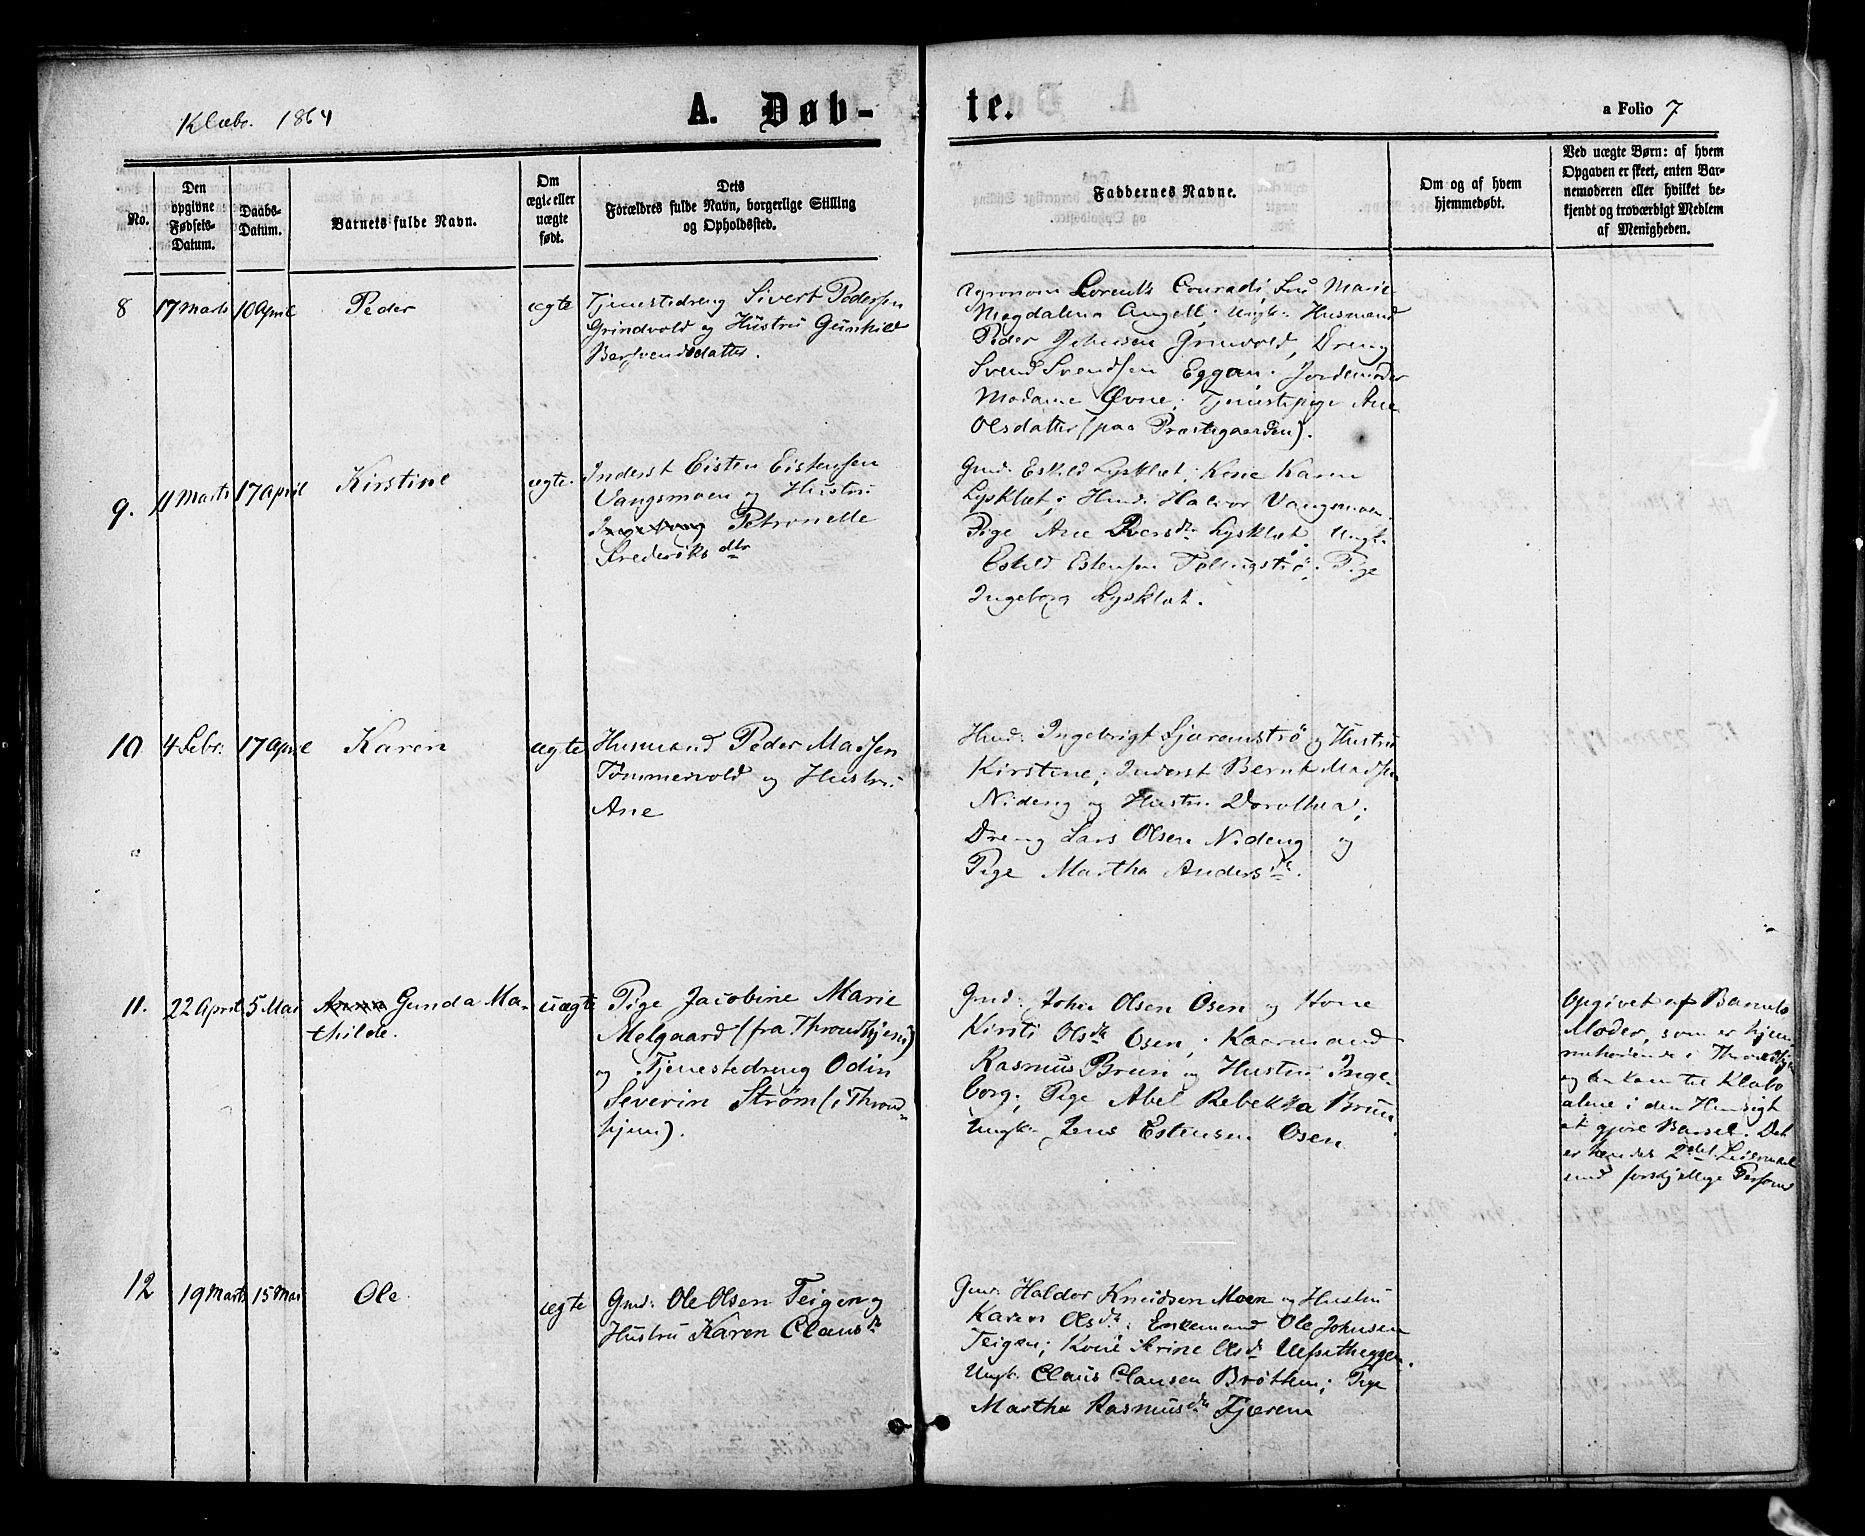 Klæbo. 1864
A. Døb-
te.
a Folio 7
No.
Den
opgivne
Fødsels-
Datum.
Daabs-
Datum.
Barnets fulde Navn.
Om
ægte eller
uægte
født.
Dets
Forældres fulde Navn, borgerlige Stilling
og Opholdssted.
Faddernes Navne.
Om og af hvem
hjemmedøbt.
Ved uægte Børn: af hvem
Opgaven er skeet, enten Bar-
nemoderen eller hvilket be-
kjendt og troværdigt Medlem
af Menigheden.
8 17 Marts 10 April Peder ægte
Tjenestedreng Sivert Pedersen
Grindvold og Hustru Gunhild
Bersvendsdatter.
Agronom Lorentz Conradi, Frk Marie
Magdalena Angell; Ungk. Husmand
Peder Johnsen Grinvold, Dreng
Svend Svendsen Eggan; Jordemoder
Madame Øvne; Tjenestepige Ane
Olsdatter (paa Præstegaarden).
9. 11 Marts 17 April Kirstine ægte.
Inderst Eisten Eistensen
Vangsmoen og Hustru
Ingeborg Petronelle
Frederiksdtr
Gmd. Eskild Lysklæt; Kone Karen
Lysklæt; Hmd. Halvor Vangsmoen
Pige Ane Iversdtr Lysklæt; Ungk.
Eskild Estensen Tellugstrø; Pige
Ingeborg Lysklæt.
10. 4 Febr: 17 April Karen ægte
Husmand Peder Madsen
Tømmervold og Hustru
Ane
Hmd: Ingebrigt Fjæremstrø og Hustru
Kirstine; Inderst Bernt Madsen
Nideng og Hustru Dorothea;
Dreng Lars Olsen Nideng og
Pige Martha Andersdr.
11. 22 April 5 Mai Anna Gunda Ma-
thilde. uægte
Pige Jacobine Marie
Melgaard (fra Throndhjem)
og Tjenestedreng Odin
Severin Strøm (i Thrond-
hjem).
Gmd: John Olsen Osen og Kone
Kirsti Olsdtr Osen; Kaarmand
Rasmus Bruun og Hustru Inge-
borg; Pige Abel Rebekka Bruun
Ungk. Jens Estensen Osen
Opgivet af Barnets
Moder, som er hjem-
mehørende i Throndhjem
og kom til Klæbo
alene i den Hensigt
at gjøre Barsel. Det
er hendes 2det Leiermaal
med forskjellige Personer
12 19 Marts 15 Mai Ole ægte
Gmd: Ole Olsen Teigen og
Hustru Karen Clausdtr
Gmd: Haldor Knudsen Moen og Hustru
Karen Olsdtr; Enkemand Ole Johnsen
Teigen; Kone Serine Olsdr Ulfsethæggen.
Ungk. Claus Clausen Brøttem; Pige
Martha Rasmusdtr Fjærem